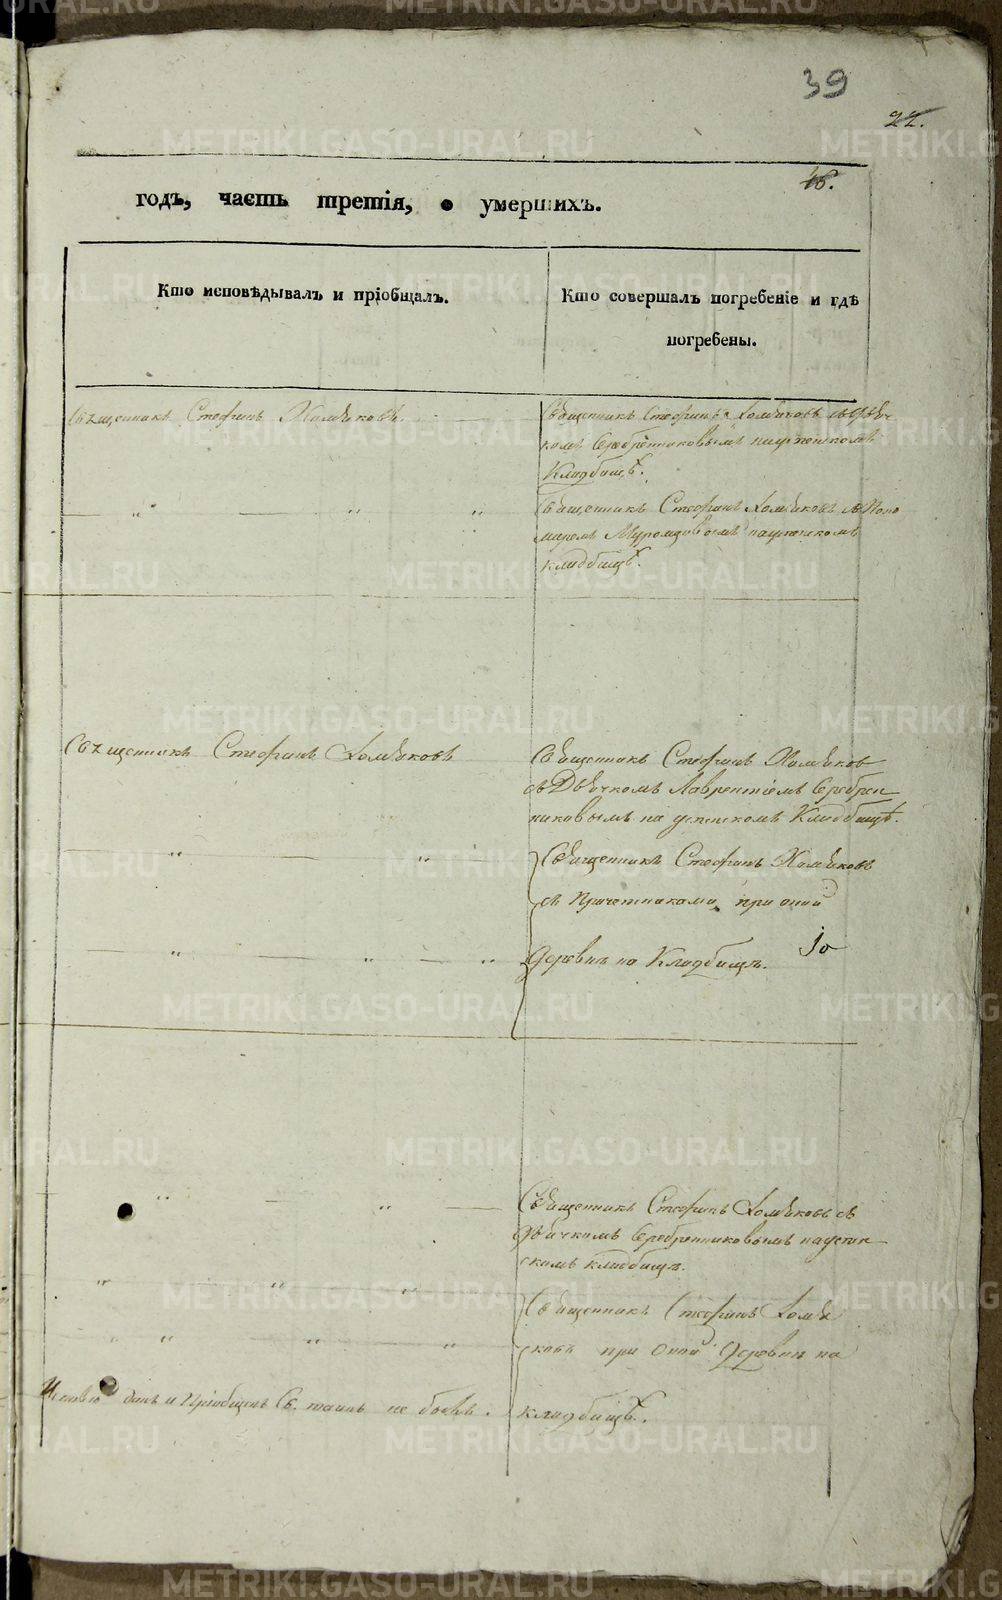 39
22.
16.
годъ, часть третія, о умершихъ.
Кто исповѣдывалъ и пріобщалъ.
Кто совершалъ погребеніе и гдѣ
погребены.
Священникъ Стефанъ Хомяковъ
Священникъ Стефанъ Хомяковъ съ Дьяч-
комъ Серебренниковымъ на
Кладбищѣ.
" " "
Священникъ Стефанъ Хомяковъ съ Поно
маремъ Муромцовымъ на
кладбищѣ.
Священникъ Стефанъ Хомяковъ
Священникъ Стефанъ Хомяков
съ Дьячкомъ Лаврентіемъ Серебрен
никовымъ на Кладбищѣ.
" "
Священникъ Стефанъ Хомяковъ
съ Причетниками при оной
" " "
Деревнѣ на Кладбищѣ.
10
" "
Священникъ Стефанъ Хомяковъ съ
Дьячкомъ Серебренниковымъ на
скомъ кладбищѣ.
" " "
Священникъ Стефанъ Хомя
" " "
ковъ при оной Деревнѣ на
Исповѣданъ и Пріобщенъ Св. таинъ не былъ.
кладбищѣ.
METRIKI.GASO-URAL.RU